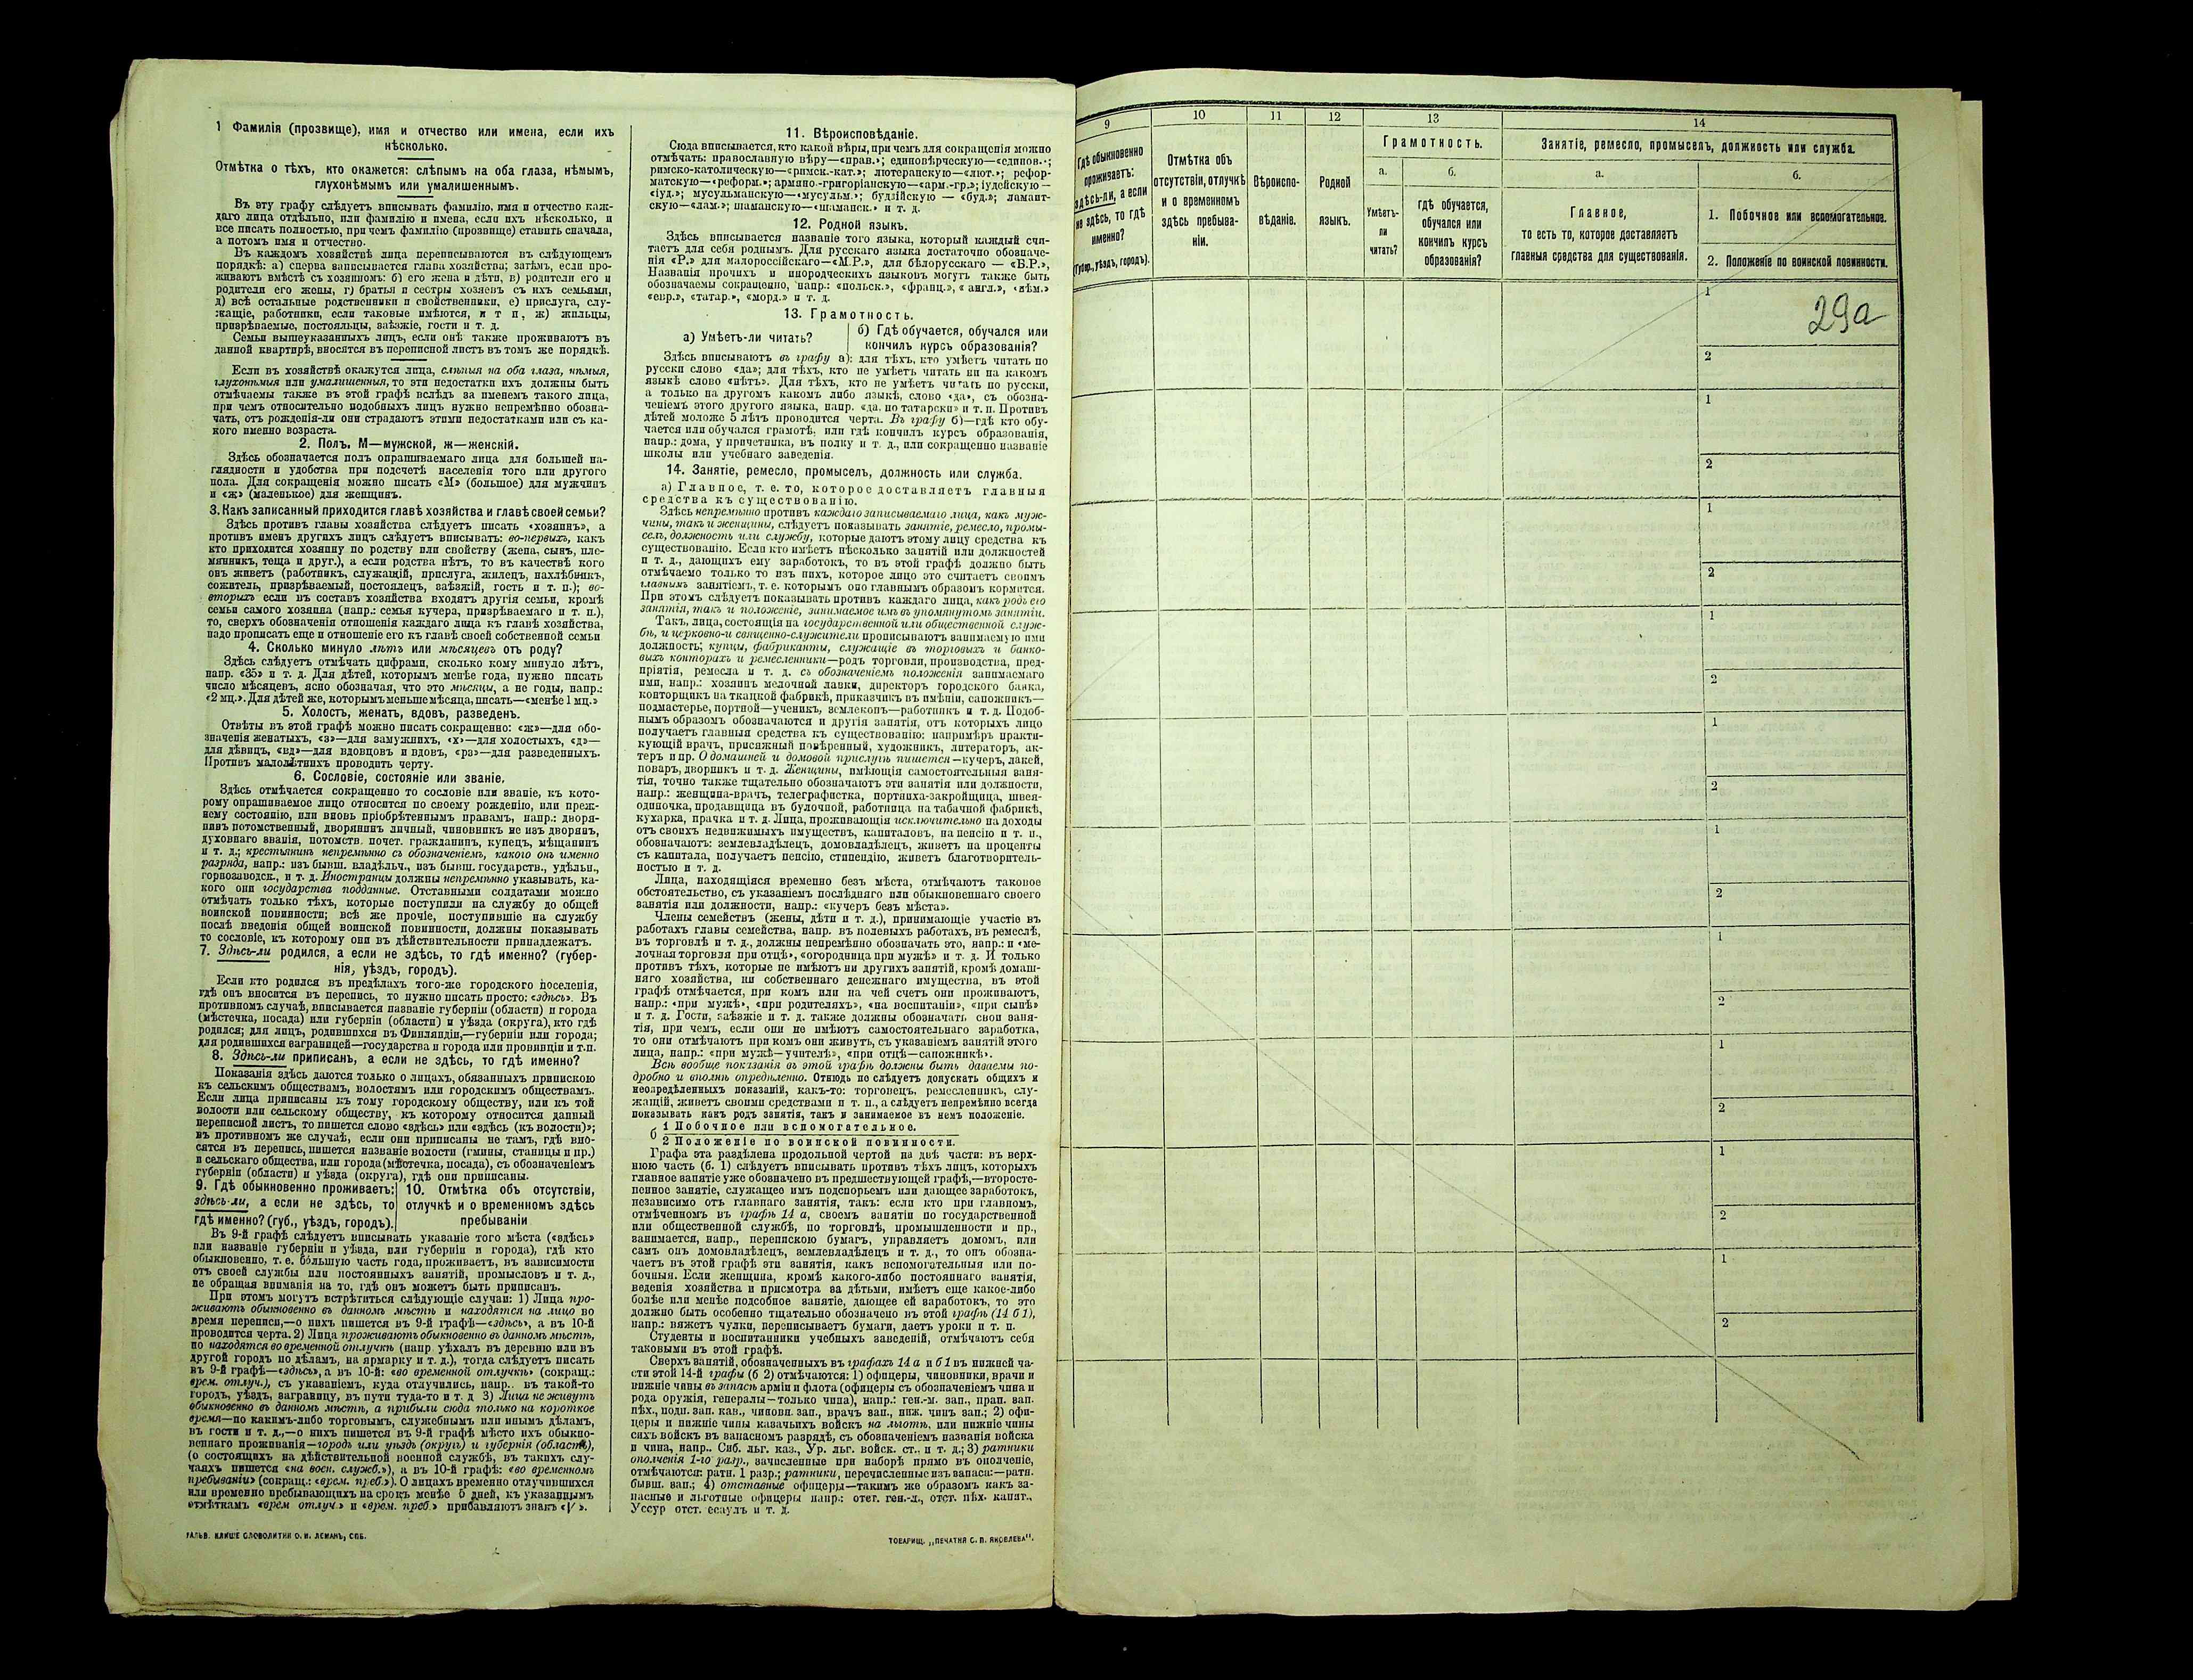 1 Фамилія (прозвище), имя и отчество или имена, если ихъ
нѣсколько.
Отмѣтка о тѣхъ, кто окажется: слѣпымъ на оба глаза, нѣмымъ,
глухонѣмымъ или умалишеннымъ.
Въ эту графу слѣдуетъ вписывать фамилію, имя и отчество каж-
даго лица отдѣльно, или фамилію и имена, если ихъ нѣсколько, и
все писать полностью, при чемъ фамилію (прозвище) ставить сначала,
а потомъ имя и отчество.
Въ каждомъ хозяйствѣ лица переписываются въ слѣдующемъ
порядкѣ: а) сперва записывается глава хозяйства; затѣмъ, если про-
живаютъ вмѣстѣ съ хозяиномъ: б) его жена и дѣти, в) родители его и
родители его жены, г) братья и сестры хозяевъ съ ихъ семьями,
д) всѣ остальные родственники и свойственники, е) прислуга, слу-
жащіе, работники, если таковые имѣются, и т п, ж) жильцы,
призрѣваемые, постояльцы, заѣзжіе, гости и т. д.
Семьи вышеуказанныхъ лицъ, если онѣ также проживаютъ въ
данной квартирѣ, вносятся въ переписной листъ въ томъ же порядкѣ.
Если въ хозяйствѣ окажутся лица, слѣпыя на оба глаза, нѣмыя,
глухонѣмыя или умалишенныя, то эти недостатки ихъ должны быть
отмѣчаемы также въ этой графѣ вслѣдъ за именемъ такого лица,
при чемъ относительно подобныхъ лицъ нужно непремѣнно обозна-
чать, отъ рожденія-ли они страдаютъ этими недостатками или съ ка-
кого именно возраста.
2. Полъ. М—мужской, ж—женскій.
Здѣсь обозначается полъ опрашиваемаго лица для большей на-
глядности и удобства при подсчетѣ населенія того или другого
пола. Для сокращенія можно писать «М» (большое) для мужчинъ
и «ж» (маленькое) для женщинъ.
3. Какъ записанный приходится главѣ хозяйства и главѣ своей семьи?
Здѣсь противъ главы хозяйства слѣдуетъ писать «хозяинъ», а
противъ именъ другихъ лицъ слѣдуетъ вписывать: во-первыхъ, какъ
кто приходится хозяину по родству или свойству (жена, сынъ, пле-
мянникъ, теща и друг.), а если родства нѣтъ, то въ качествѣ кого
онъ живетъ (работникъ, служащій, прислуга, жилецъ, нахлѣбникъ,
сожитель, призрѣваемый, постоялецъ, заѣзжій, гость и т. п.); во-
вторыхъ если въ составъ хозяйства входятъ другія семьи, кромѣ
семьи самого хозяина (напр.: семья кучера, призрѣваемаго и т. п.),
то, сверхъ обозначенія отношенія каждаго лица къ главѣ хозяйства,
надо прописать еще и отношеніе его къ главѣ своей собственной семьи
4. Сколько минуло лѣтъ или мѣсяцевъ отъ роду?
Здѣсь слѣдуетъ отмѣчать цифрами, сколько кому минуло лѣтъ,
напр. «35» и т. д. Для дѣтей, которымъ менѣе года, нужно писать
число мѣсяцевъ, ясно обозначая, что это мѣсяцы, а не годы, напр.:
«2 мц.». Для дѣтей же, которымъ меньше мѣсяца, писать—«менѣе 1 мц.»
5. Холостъ, женатъ, вдовъ, разведенъ.
Отвѣты въ этой графѣ можно писать сокращенно: «ж»—для обо-
значенія женатыхъ, «з»—для замужнихъ, «х»—для холостыхъ, «д»—
для дѣвицъ, «вд»—для вдовцовъ и вдовъ, «рз»—для разведенныхъ.
Противъ малолѣтнихъ проводить черту.
6. Сословіе, состояніе или званіе,
Здѣсь отмѣчается сокращенно то сословіе или званіе, къ кото-
рому опрашиваемое лицо относится по своему рожденію, или преж-
нему состоянію, или вновь пріобрѣтеннымъ правамъ, напр.: дворя-
нинъ потомственный, дворянинъ личный, чиновникъ не изъ дворянъ,
духовнаго званія, потомств. почет. гражданинъ, купецъ, мѣщанинъ
и т. д.; крестьянинъ непремѣнно съ обозначеніемъ, какого онъ именно
разряда, напр.: изъ бывш. владѣльч., изъ бывш. государств., удѣльн.,
горнозаводск., и т. д. Иностранцы должны непремѣнно указывать, ка-
кого они государства подданные. Отставными солдатами можно
отмѣчать только тѣхъ, которые поступили на службу до общей
воинской повинности; всѣ же прочіе, поступившіе на службу
послѣ введенія общей воинской повинности, должны показывать
то сословіе, къ которому они въ дѣйствительности принадлежатъ.
7. Здѣсь-ли родился, а если не здѣсь, то гдѣ именно? (губер-
нія, уѣздъ, городъ).
Если кто родился въ предѣлахъ того-же городского поселенія,
гдѣ онъ вносится въ перепись, то нужно писать просто: «здѣсь». Въ
противномъ случаѣ, вписывается названіе губерніи (области) и города
(мѣстечка, посада) или губерніи (области) и уѣзда (округа), кто гдѣ
родился; для лицъ, родившихся въ Финляндіи,—губерніи или города;
для родившихся заграницей—государства и города или провинціи и т.п.
8. Здѣсь-ли приписанъ, а если не здѣсь, то гдѣ именно?
Показанія здѣсь даются только о лицахъ, обязанныхъ припискою
къ сельскимъ обществамъ, волостямъ или городскимъ обществамъ.
Если лица приписаны къ тому городскому обществу, или къ той
волости или сельскому обществу, къ которому относится данный
переписной листъ, то пишется слово «здѣсь» или «здѣсь (къ волости)»;
въ противномъ же случаѣ, если они приписаны не тамъ, гдѣ вно-
сятся въ перепись, пишется названіе волости (гмины, станицы и пр.)
и сельскаго общества, или города (мѣстечка, посада), съ обозначеніемъ
губерніи (области) и уѣзда (округа), гдѣ они приписаны.
9. Гдѣ обыкновенно проживаетъ:
здѣсь-ли, а если не здѣсь, то
гдѣ именно? (губ., уѣздъ, городъ).
10. Отмѣтка объ отсутствіи,
отлучкѣ и о временномъ здѣсь
пребываніи
Въ 9-й графѣ слѣдуетъ вписывать указаніе того мѣста («здѣсь»
или названіе губерніи и уѣзда, или губерніи и города), гдѣ кто
обыкновенно, т. е. бо́льшую часть года, проживаетъ, въ зависимости
отъ своей службы или постоянныхъ занятій, промысловъ и т. д.,
не обращая вниманія на то, гдѣ онъ можетъ быть приписанъ.
При этомъ могутъ встрѣтиться слѣдующіе случаи: 1) Лица про-
живаютъ обыкновенно въ данномъ мѣстѣ и находятся на лицо во
время переписи,—о нихъ пишется въ 9-й графѣ—«здѣсь», а въ 10-й
проводится черта. 2) Лица проживаютъ обыкновенно въ данномъ мѣстѣ,
но находятся во временной отлучкѣ (напр уѣхалъ въ деревню или въ
другой городъ по дѣламъ, на ярмарку и т. д.), тогда слѣдуетъ писать
въ 9-й графѣ—«здѣсь», а въ 10-й: «во временной отлучкѣ» (сокращ.:
врем. отлуч.), съ указаніемъ, куда отлучились, напр.. въ такой-то
городъ, уѣздъ, заграницу, въ пути туда-то и т. д 3) Лица не живутъ
обыкновенно въ данномъ мѣстѣ, а прибыли сюда только на короткое
время—по какимъ-либо торговымъ, служебнымъ или инымъ дѣламъ,
въ гости и т. д.,—о нихъ пишется въ 9-й графѣ мѣсто ихъ обыкно-
веннаго проживанія—городъ или уѣздъ (округъ) и губернія (область),
(о состоящихъ на дѣйствительной военной службѣ, въ такихъ слу-
чаяхъ пишется «на воен. служб.»), а въ 10-й графѣ: «во временномъ
пребываніи» (сокращ.: «врем. преб.»). О лицахъ временно отлучившихся
или временно пребывающихъ на срокъ менѣе 5 дней, къ указаннымъ
отмѣткамъ «врем отлуч.» и «врем. преб.» прибавляютъ знакъ «V».
ГАЛЬВ. КЛИШЕ СЛОВОЛИТНИ О. И. ЛЕМАНЪ, СПБ.
11. Вѣроисповѣданіе.
Сюда вписывается, кто какой вѣры, при чемъ для сокращенія можно
отмѣчать: православную вѣру—«прав.»; единовѣрческую—«единов.»;
римско-католическую—«римск.-кат.»; лютеранскую—«лют.»; рефор-
матскую—«реформ.»; армяно.-григоріанскую—«арм.-гр.»; іудейскую—
«іуд.»; мусульманскую—«мусульм.»; буддійскую — «буд.»; ламаит-
скую—«лам.»; шаманскую—«шаманск.» и т. д.
12. Родной языкъ.
Здѣсь вписывается названіе того языка, который каждый счи-
таетъ для себя роднымъ. Для русскаго языка достаточно обозначе-
нія «Р.» для малороссійскаго—«М.Р.», для бѣлорусскаго — «Б.Р.»,
Названія прочихъ и инородческихъ языковъ могутъ также быть
обозначаемы сокращенно, напр.: «польск.», «франц.», «англ.», «нѣм.»
«евр.», «татар.», «морд.» и т. д.
13. Грамотность.
а) Умѣетъ-ли читать?
б) Гдѣ обучается, обучался или
кончилъ курсъ образованія?
Здѣсь вписываютъ въ графу а): для тѣхъ, кто умѣетъ читать по
русски слово «да»; для тѣхъ, кто не умѣетъ читать ни на какомъ
языкѣ слово «нѣтъ». Для тѣхъ, кто не умѣетъ читать по русски,
а только на другомъ какомъ либо языкѣ, слово «да», съ обозна-
ченіемъ этого другого языка, напр. «да, по татарски» и т. п. Противъ
дѣтей моложе 5 лѣтъ проводится черта. Въ графу б)—гдѣ кто обу-
чается или обучался грамотѣ, или гдѣ кончилъ курсъ образованія,
напр.: дома, у причетника, въ полку и т. д., или сокращенно названіе
школы или учебнаго заведенія.
14. Занятіе, ремесло, промыселъ, должность или служба.
а) Главное, т. е. то, которое доставляетъ главныя
средства къ существованію.
Здѣсь непремѣнно противъ каждаго записываемаго лица, какъ муж-
чины, такъ и женщины, слѣдуетъ показывать занятіе, ремесло, промы-
селъ, должность или службу, которые даютъ этому лицу средства къ
существованію. Если кто имѣетъ нѣсколько занятій или должностей
и т. д., дающихъ ему заработокъ, то въ этой графѣ должно быть
отмѣчаемо только то изъ нихъ, которое лицо это считаетъ своимъ
главнымъ занятіемъ, т. е. которымъ оно главнымъ образомъ кормится.
При этомъ слѣдуетъ показывать противъ каждаго лица, какъ родъ его
занятія, такъ и положеніе, занимаемое имъ въ упомянутомъ занятіи.
Такъ, лица, состоящія на государственной или общественной служ-
бѣ, и церковно-и священно-служители прописываютъ занимаемую ими
должность; купцы, фабриканты, служащіе въ торговыхъ и банко-
выхъ конторахъ и ремесленники—родъ торговли, производства, пред-
пріятія, ремесла и т. д. съ обозначеніемъ положенія занимаемаго
ими, напр.: хозяинъ мелочной лавки, директоръ городского банка,
конторщикъ на ткацкой фабрикѣ, приказчикъ въ имѣніи, сапожникъ—
подмастерье, портной—ученикъ, землекопъ—работникъ и т. д. Подоб-
нымъ образомъ обозначаются и другія занятія, отъ которыхъ лицо
получаетъ главныя средства къ существованію: напримѣръ практи-
кующій врачъ, присяжный повѣренный, художникъ, литераторъ, ак-
теръ и пр. О домашней и домовой прислугѣ пишется—кучеръ, лакей,
поваръ, дворникъ и т. д. Женщины, имѣющія самостоятельныя заня-
тія, точно также тщательно обозначаютъ эти занятія или должности,
напр.: женщина-врачъ, телеграфистка, портниха-закройщица, швея-
одиночка, продавщица въ булочной, работница на табачной фабрикѣ,
кухарка, прачка и т. д. Лица, проживающія исключительно на доходы
отъ своихъ недвижимыхъ имуществъ, капиталовъ, на пенсію и т. п.,
обозначаютъ: землевладѣлецъ, домовладѣлецъ, живетъ на проценты
съ капитала, получаетъ пенсію, стипендію, живетъ благотворитель-
ностью и т. д.
Лица, находящіяся временно безъ мѣста, отмѣчаютъ таковое
обстоятельство, съ указаніемъ послѣдняго или обыкновеннаго своего
занятія или должности, напр.: «кучеръ безъ мѣста».
Члены семействъ (жены, дѣти и т. д.), принимающіе участіе въ
работахъ главы семейства, напр. въ полевыхъ работахъ, въ ремеслѣ,
въ торговлѣ и т. д., должны непремѣнно обозначать это, напр.: и «ме-
лочная торговля при отцѣ», «огородница при мужѣ» и т. д. И только
противъ тѣхъ, которые не имѣютъ ни другихъ занятій, кромѣ домаш-
няго хозяйства, ни собственнаго денежнаго имущества, въ этой
графѣ отмѣчается, при комъ или на чей счетъ они проживаютъ,
напр.: «при мужѣ», «при родителяхъ», «на воспитаніи», «при сынѣ»
и т. д. Гости, заѣзжіе и т. д. также должны обозначать свои заня-
тія, при чемъ, если они не имѣютъ самостоятельнаго заработка,
то они отмѣчаютъ при комъ они живутъ, съ указаніемъ занятій этого
лица, напр.: «при мужѣ—учителѣ», «при отцѣ—сапожникѣ».
Всѣ вообще показанія въ этой графѣ должны быть даваемы по-
дробно и вполнѣ опредѣленно. Отнюдь не слѣдуетъ допускать общихъ и
неопредѣленныхъ показаній, какъ-то: торговецъ, ремесленникъ, слу-
жащій, живетъ своими средствами и т. п., а слѣдуетъ непремѣнно всегда
показывать какъ родъ занятія, такъ и занимаемое въ немъ положеніе.
б 1 Побочное или вспомогательное.
2 Положеніе по воинской повинности.
Графа эта раздѣлена продольной чертой на двѣ части: въ верх-
нюю часть (б. 1) слѣдуетъ вписывать противъ тѣхъ лицъ, которыхъ
главное занятіе уже обозначено въ предшествующей графѣ,—второсте-
пенное занятіе, служащее имъ подспорьемъ или дающее заработокъ,
независимо отъ главнаго занятія, такъ: если кто при главномъ,
отмѣченномъ въ графѣ 14 а, своемъ занятіи по государственной
или общественной службѣ, по торговлѣ, промышленности и пр.,
занимается, напр., перепискою бумагъ, управляетъ домомъ, или
самъ онъ домовладѣлецъ, землевладѣлецъ и т. д., то онъ обозна-
чаетъ въ этой графѣ эти занятія, какъ вспомогательныя или по-
бочныя. Если женщина, кромѣ какого-либо постояннаго занятія,
веденія хозяйства и присмотра за дѣтьми, имѣетъ еще какое-либо
болѣе или менѣе подсобное занятіе, дающее ей заработокъ, то это
должно быть особенно тщательно обозначено въ этой графѣ (14 б 1),
напр.: вяжетъ чулки, переписываетъ бумаги, даетъ уроки и т. п.
Студенты и воспитанники учебныхъ заведеній, отмѣчаютъ себя
таковыми въ этой графѣ.
Сверхъ занятій, обозначенныхъ въ графахъ 14 а и б 1 въ нижней ча-
сти этой 14-й графы (б 2) отмѣчаются: 1) офицеры, чиновники, врачи и
нижніе чины въ запасѣ арміи и флота (офицеры съ обозначеніемъ чина и
рода оружія, генералы—только чина), напр.: ген.-м. зап., прап. зап.
пѣх., подп. зап. кав., чиновн. зап., врачъ зап., ниж. чинъ зап.; 2) офи-
церы и нижніе чины казачьихъ войскъ на льготѣ, или нижніе чины
сихъ войскъ въ запасномъ разрядѣ, съ обозначеніемъ названія войска
и чина, напр.. Сиб. льг. каз., Ур. льг. войск. ст., и т. д.; 3) ратники
ополченія 1-го разр., зачисленные при наборѣ прямо въ ополченіе,
отмѣчаются: ратн. 1 разр.; ратники, перечисленные изъ запаса:—ратн.
бывш. зап.; 4) отставные офицеры—такимъ же образомъ какъ за-
пасные и льготные офицеры напр.: отег. ген.-л., отст. пѣх. капит.,
Уссур отст. есаулъ и т. д.
ТОВАРИЩ. „ПЕЧАТНЯ С. П. ЯКОВЛЕВА".
9
10
11
12
13
14
Гдѣ обыкновенно
проживаетъ:
здѣсь-ли, а если
не здѣсь, то гдѣ
именно?
(Губер., уѣздъ, городъ).
Отмѣтка объ
отсутствіи, отлучкѣ
и о временномъ
здѣсь пребыва-
ніи.
Вѣроиспо-
вѣданіе.
Родной
языкъ.
Грамотность.
а.
Умѣетъ-
ли
читать?
б.
гдѣ обучается,
обучался или
кончилъ курсъ
образованія?
Занятіе, ремесло, промыселъ, должность или служба.
а.
Главное,
то есть то, которое доставляетъ
главныя средства для существованія.
б.
1. Побочное или вспомогательное.
2. Положеніе по воинской повинности.
1
29а
2
1
2
1
2
1
2
1
2
1
2
1
2
1
2
1
2
1
2